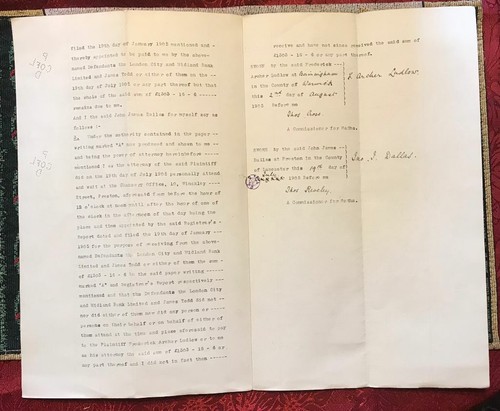 filed the 15th day of January 1901 mentioned and -
thereby appointed to be paid to me by the above-
named Defendants the London City and Midland Bank
Limited and James Todd or either of them on the --
18th day of July 1901 or any part thereof but that
the whole of the said sum of £1888 - 15 - 6 ------
remains due to me.
And I the said John James Dallas for myself say as
follows :-
Under the authority contained in the paper ----
writing marked "A" now produced and shown to me --
and being the power of attorney hereinbefore -----
mentioned I as the Attorney of the said Plaintiff
did on the 18th day of July 1901 personally attend
and wait at the Chancery Office, 18, Winckley ----
Street, Preston, aforesaid from before the hour of
12 o'clock at noon until after the hour of one of
the clock in the afternoon of that day being the
place and time appointed by the said Registrar's -
Report dated and filed the 15th day of January ---
1901 for the purpose of receiving from the above-
named Defendants the London City and Midland Bank
Limited and James Todd or either of them the sum -
of £1888 - 15 - 6 in the said paper writing ------
marked "A" and Registrar's Report respectively ---
mentioned and that the Defendants the London City
and Midland Bank Limited and James Todd did not --
nor did either of them nor did any person or -----
persons on their behalf or on behalf of either of
them attend at the time and place aforesaid to pay
to the Plaintiff Frederick Archer Ludlow or to me
as his Attorney the said sum of £1888 - 15 - 6 or
any part thereof and I did not in fact then ------
receive and have not since received the said sum of
£1888 - 15 - 6 or any part thereof.
SWORN by the said Frederick
Archer Ludlow at Birmingham
in the County of Warwick
this 2nd day of August
1901 before me
F. Archer Ludlow
A Commissioner for Oaths.
SWORN by the said John James
Dallas at Preston in the County
of Lancaster this 19th day of
July
August 1901 before me
Jno J. Dallas.
A Commissioner for Oaths.